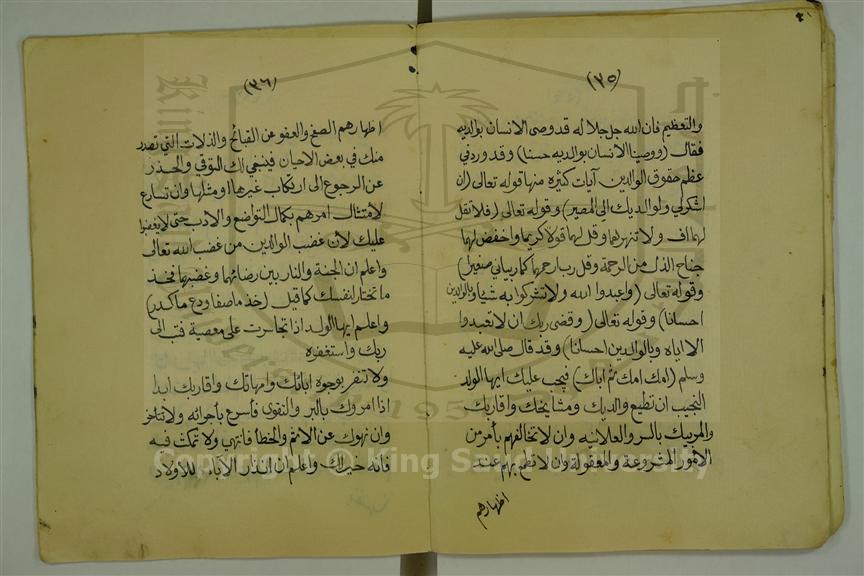 (٣٥)
والتعظيم فان الله جل جلاله قد وصى الانسان بوالديه
فقال (ووصينا الانسان بوالديه حسنا) وقد ورد في
عظم حقوق الوالدين آيات كثيره منها قوله تعالى (ان
اشكرلي ولوالديك الى المصير) وقوله تعالى (فلا تقل
لهما اف ولا تنهرهما وقل لهما قولا كريما واخفض لهما
جناح الذل من الرحمة وقل رب ارحمهما كما ربياني صغيرا)
وقوله تعالى (واعبدوا الله ولا تشركوا به شيا وبالوالدين
احسانا) وقوله تعالى (وقضى ربك ان لا تعبدوا
الا اياه وبالوالدين احسانا) وقد قال صلى الله عليه
وسلم (امك امك ثم اباك) فيجب عليك ايها الولد
النجيب ان تطيع والديك ومشايخك واقاربك
والمربيك بالسر والعلانيه وان لا تخالفهم بأمر من
الأمور المشروعة والمعقولة وان لا تطمع بهم عند
اظهارهم
(٣٦)
اظهارهم الصفح والعفو عن القبائح والذلات التي تصدر
منك في بعض الاحيان فينبغي لك التوقي والحذر
عن الرجوع الى ارتكاب غيرها او مثلها وان تسارع
لامتثال امرهم بكمال التواضع والادب حتى لا يغضبوا
عليك لأن غضب الوالدين من غضب الله تعالى
واعلم ان الجنة والنار بين رضائهما وغضبهما فخذ
ما تختار لنفسك كما قيل (خذ ما صفا ودع ما كدر)
واعلم ايها الولد اذا تجاسرت على معصية فتب الى
ربك واستغفره
ولا تنفر بوجوه ابائك وامهاتك واقاربك ابدا
اذا امروك بالبر والتقوى فأسرع بأجرائه ولا تتأخر
وان نهوك عن الاثم والخطأ فانتهي ولا تمكث فيه
فانه خير لك واعلم ان انذار الآباء للأولاد
Copyright © King Saud University